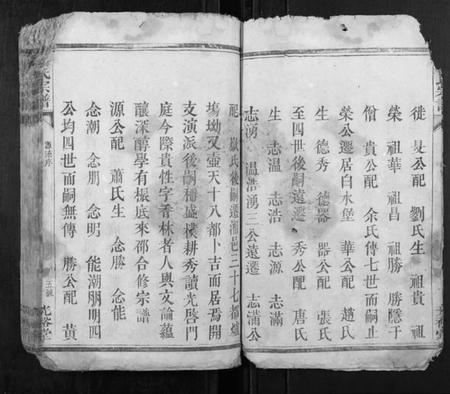 徙 旻公配 劉氏生 祖貴 祖
榮 祖華 祖昌 祖勝 勝隱于
僧 貴公配 余氏傳七世而嗣止
榮公遷居白水堡 華公配 趙氏
生 德秀 德器 器公配 張氏
至四世後嗣遠遷 秀公配 唐氏
生 志溫 志浩 志源 志滿
志湧 溫浩湧三公遠遷 志滿公
配 嚴氏後嗣遷 邑三十七
塲坳又壺天十八都卜吉而居焉開
支演派後嗣樸耕秀讀光啓門
庭今際貴性字香林者人與文論蘊
釀深醇學有振底來邵合修宗譜
源公配 蕭氏生 念勝 念能
念潮 念朋 念明 能潮朋明四
公均四世而嗣無傳 勝公配 黃
氏宗譜
五派
光裕堂